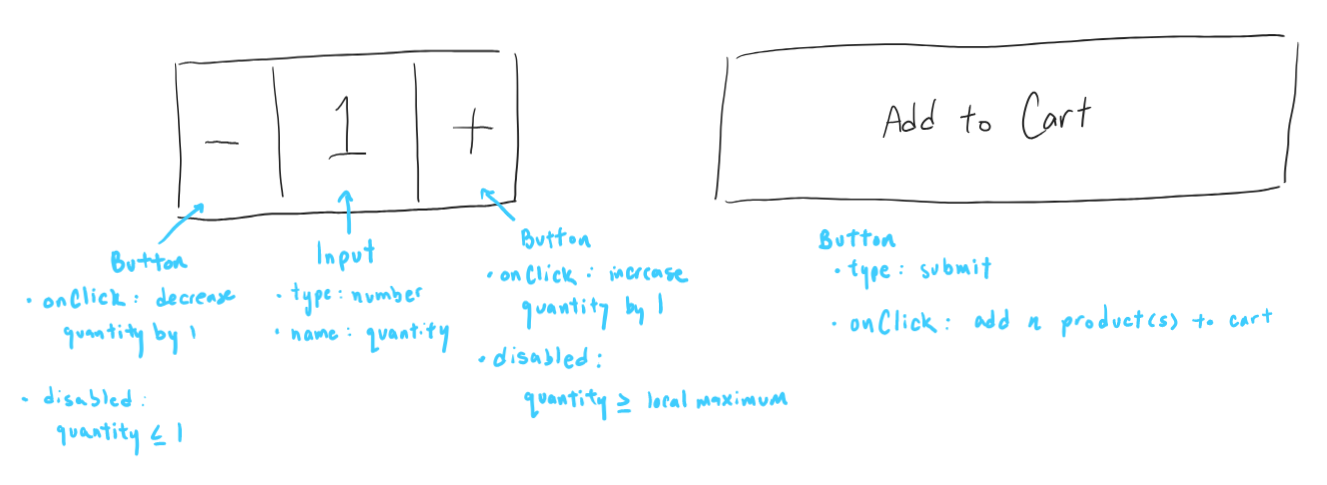 - 1 +
Add to Cart
Button
• onClick: decrease
quantity by 1
• disabled:
quantity ≤ 1
Input
• type: number
• name: quantity
Button
• onClick: increase
quantity by 1
• disabled:
quantity ≥ local maximum
Button
• type: submit
• onClick: add n product(s) to cart